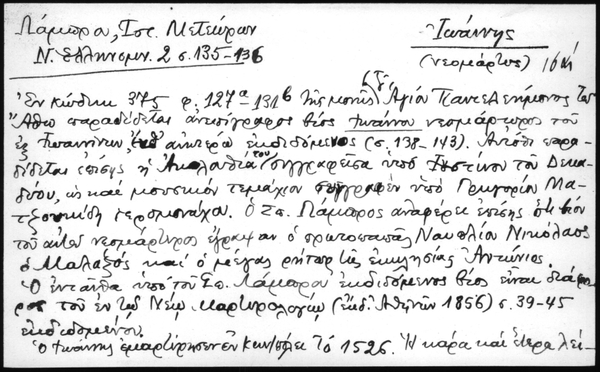 Λάμπρου, Ἱστ. Μετεώρων
Ν. Ἑλληνομν. 2 σ. 135-136
Ἰωάννης
(νεομάρτυς)
Ἐν κώδικι 375 φ. 127α-131b τῆς μονῆς τοῦ Ἁγίου Παντελεήμονος τοῦ
Ἄθω παραδίδεται ἀντιγραφος βίος Ἰωάννου νεομάρτυρος τοῦ
ἐξ Ἰωαννίνων, ἐκδιδόμενος (σ. 138-143). Αὐτόθι παρα-
δίδεται ἐπίσης ἡ Ἀκολουθία του συγγραφεῖσα ὑπὸ Ἰουστίνου τοῦ Δεκα-
δύου, ὡς καὶ μουσικὸν τεμάχιον συγγραφὲν ὑπὸ Γρηγορίου Μα-
ἱερομονάχου. Ὁ Σπ. Λάμπρος ἀναφέρει ἐπίσης ὅτι βίον
τοῦ αὐτοῦ νεομάρτυρος ἔγραψαν ὁ πρωτοπαπᾶς Ναυπλίου Νικόλαος
ὁ Μαλαξὸς καὶ ὁ μέγας ῥήτωρ τῆς ἐκκλησίας Ἀντώνιος.
Ὁ ἐνταῦθα ὑπὸ τοῦ Σπ. Λάμπρου ἐκδιδόμενος βίος εἶναι διάφο-
ρος τοῦ ἐν τῷ Νέῳ Μαρτυρολογίῳ (ἐκδ. Ἀθηνῶν 1856) σ. 39-45
ἐκδιδομένου.
Ὁ Ἰωάννης ἐμαρτύρησεν ἐν Κων/πόλει τὸ 1526. Ἡ κάρα καὶ ἕτερα λεί-